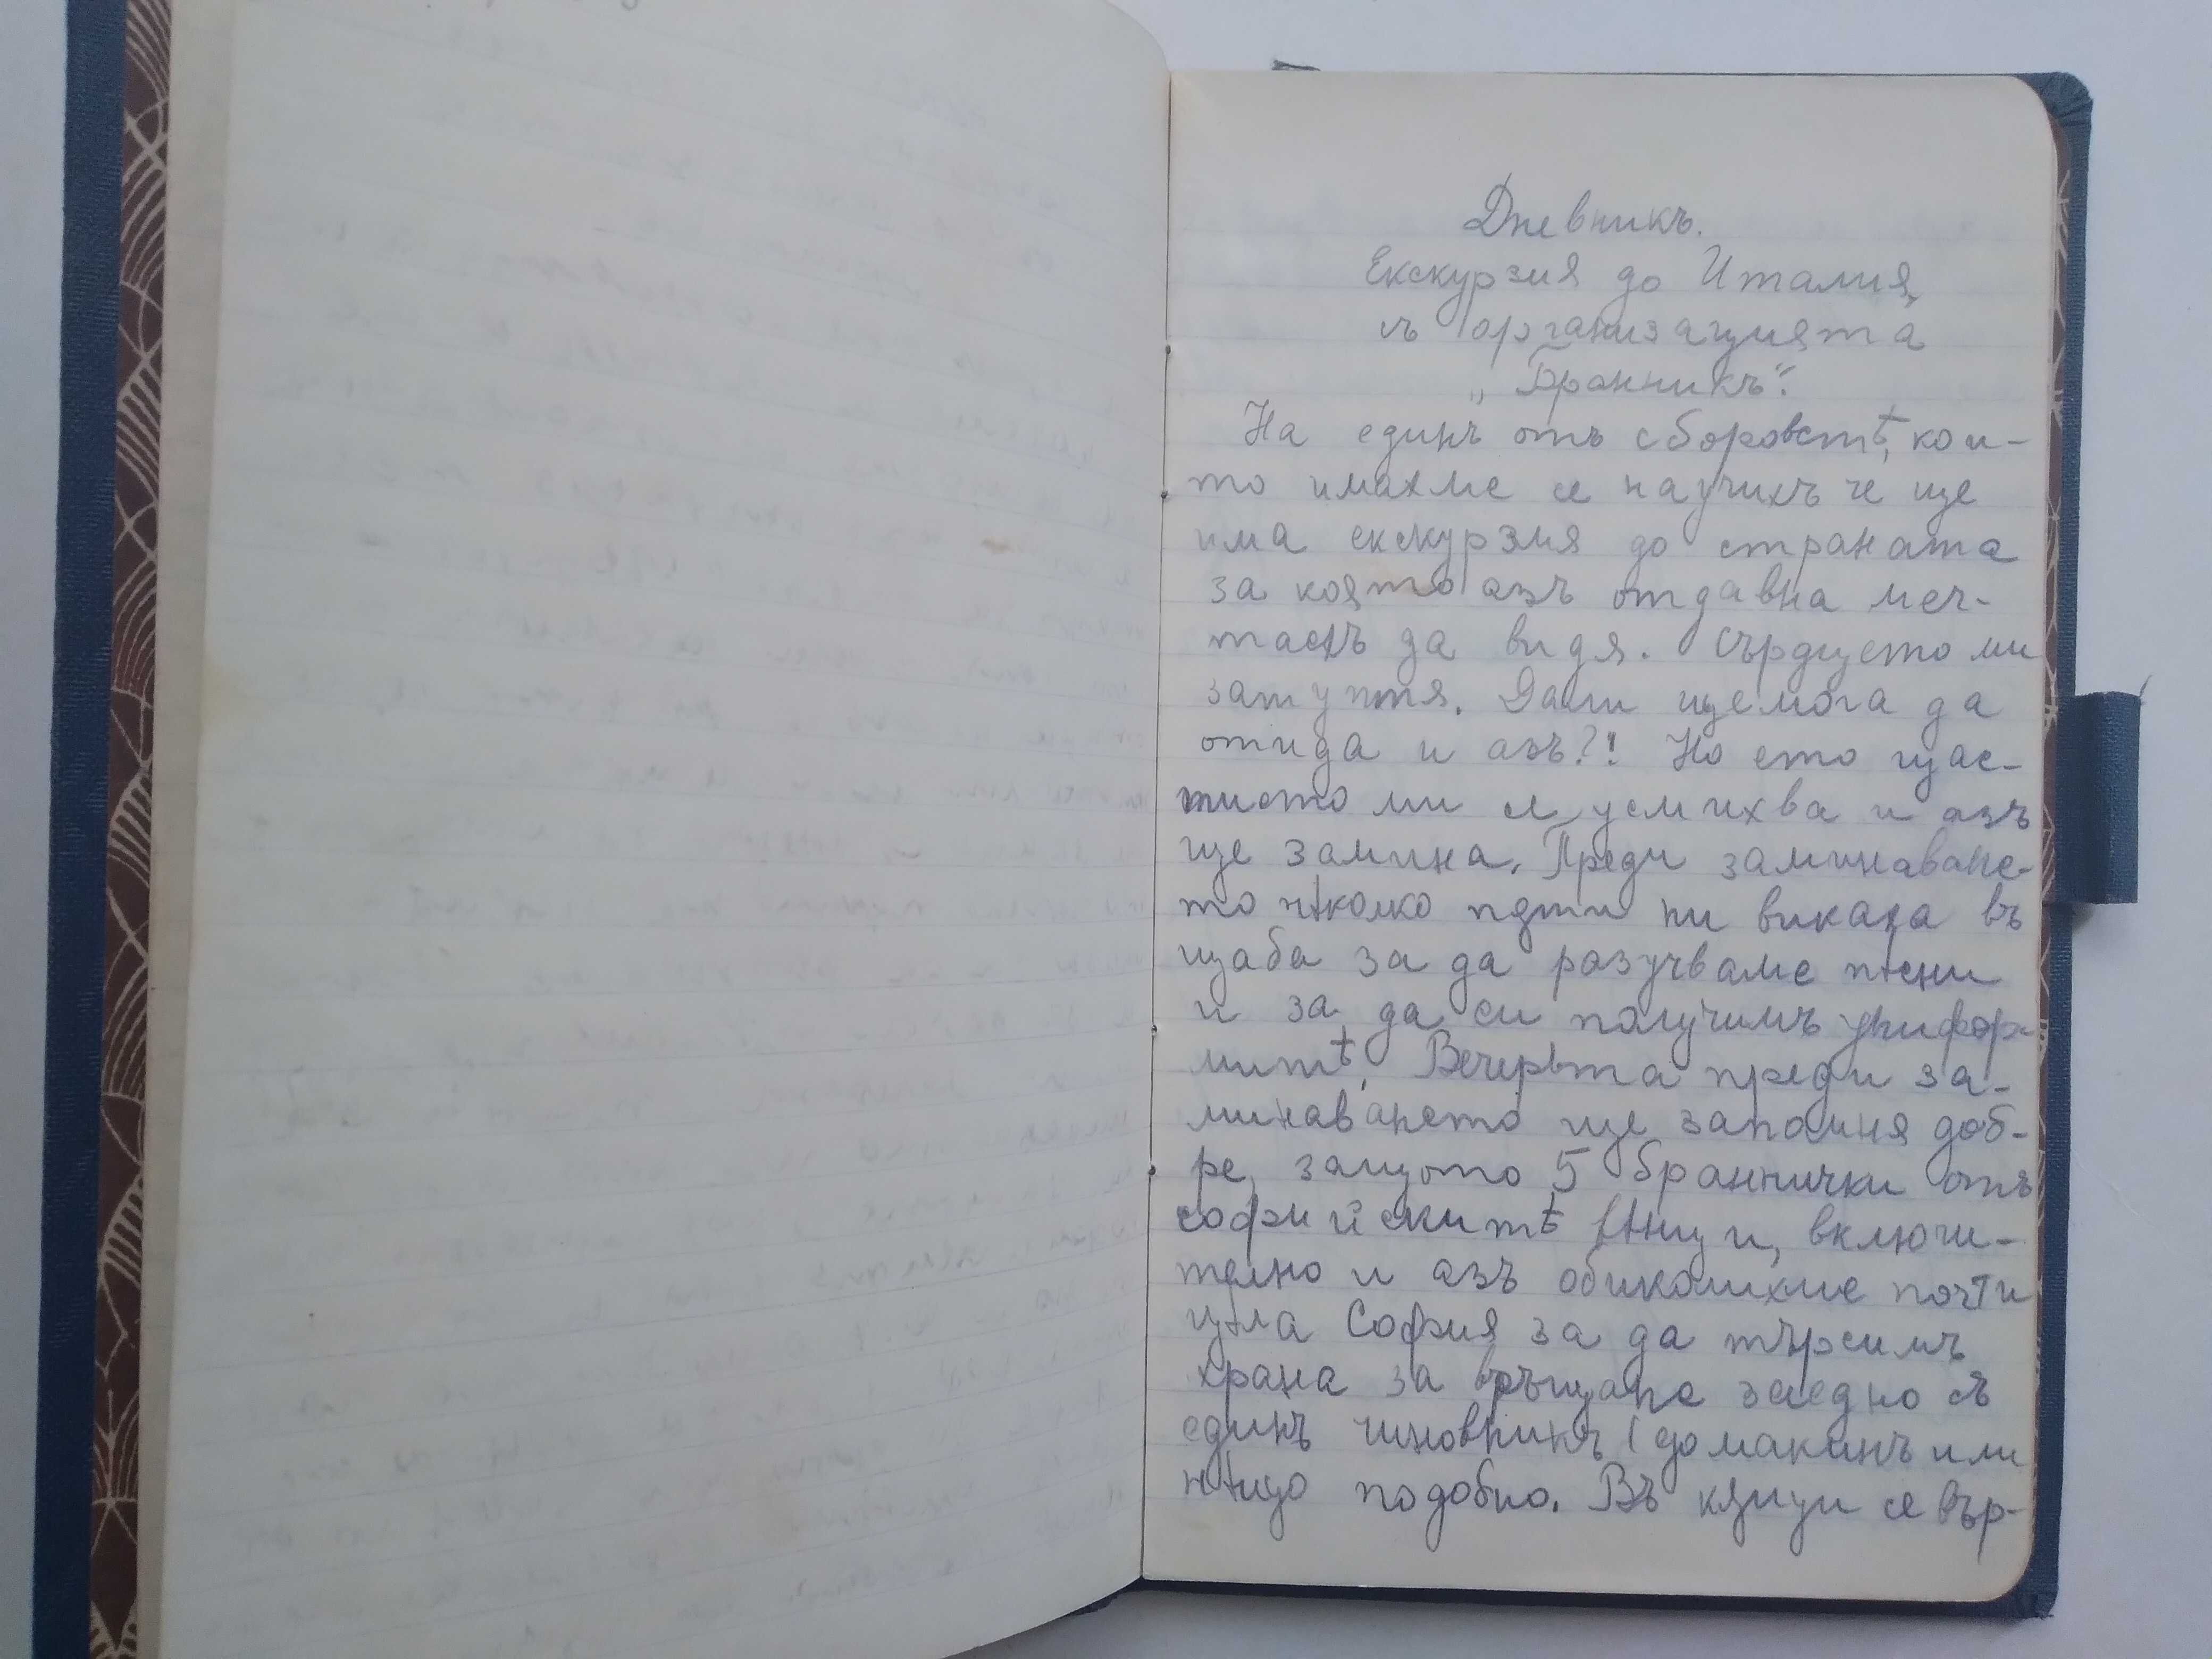 Дневникъ.
Екскурзия до Италия,
съ организацията
„Бранникъ“.
На единъ отъ сбороветѣ, кои-
то имахме се научихъ че ще
има екскурзия до страната
за която азъ отдавна меч-
таехъ да видя. Сърдцето ми
затуптя. Дали ще мога да
отида и азъ?! Но ето щас-
тието ми се усмихва и азъ
ще замина. Преди заминаване-
то нѣколко пѫти ни викаха въ
щаба за да разучваме пѣсни
и за да си получимъ унифор-
митѣ. Вечерьта преди за-
минаването ще запомня доб-
ре, защото 5 браннички отъ
софийскитѣ [...], включи-
телно и азъ обиколихме почти
цѣла София за да търсимъ
храна за връщане заедно съ
единъ чиновникъ (домакинъ или
нѣщо подобно. Въ кѫщи се вър-